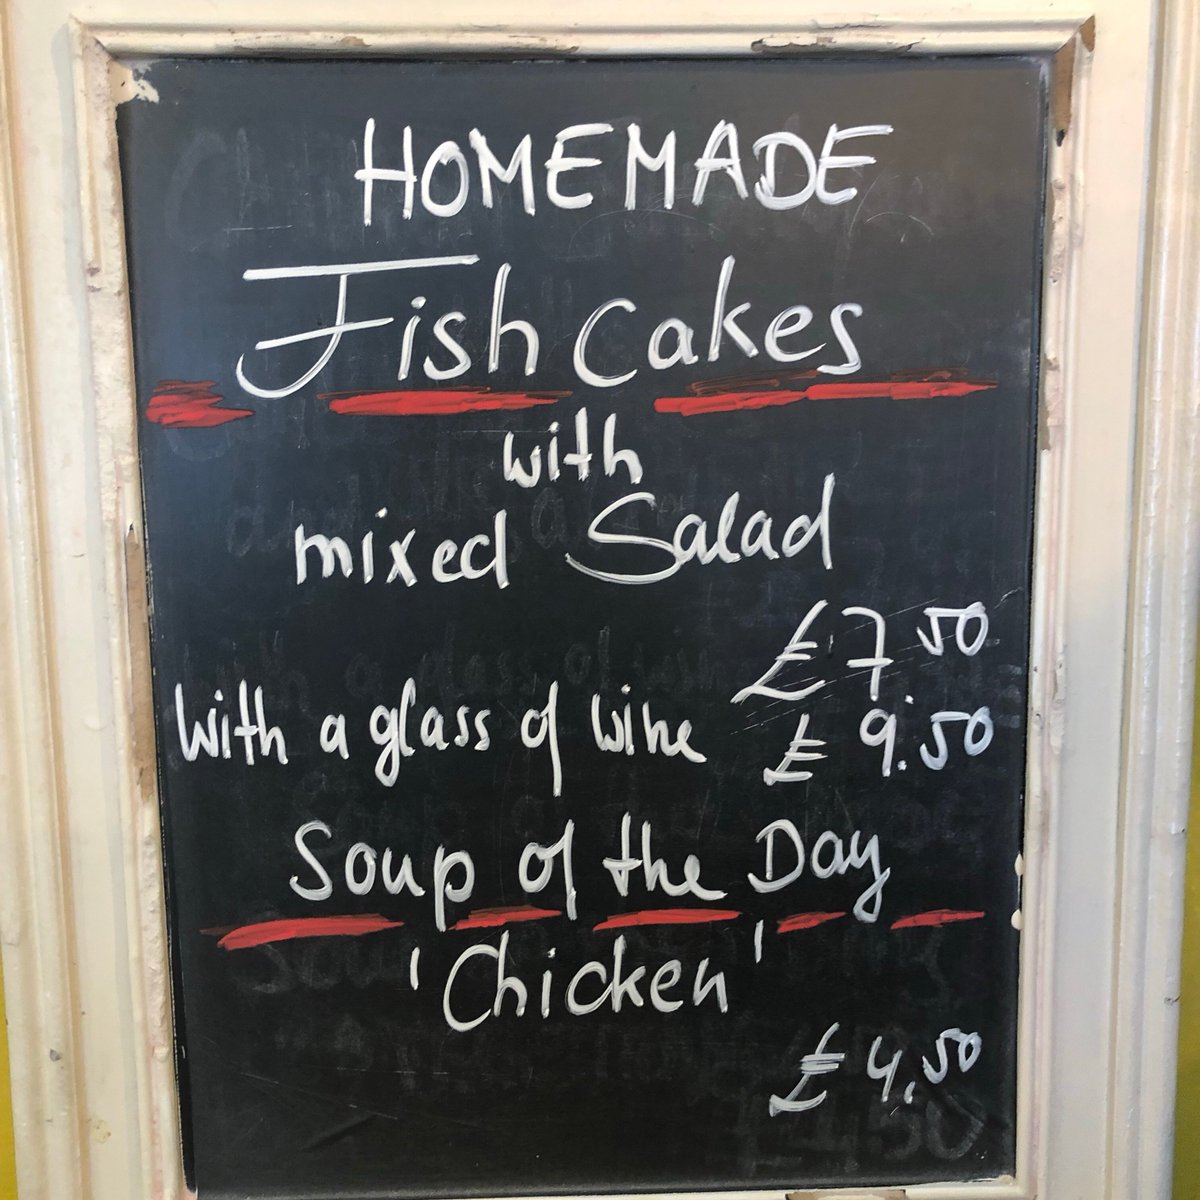 HOMEMADE
Fish Cakes
with
mixed Salad
£7.50
with a glass of wine £ 9.50
Soup of the Day
'Chicken'
£ 4.50